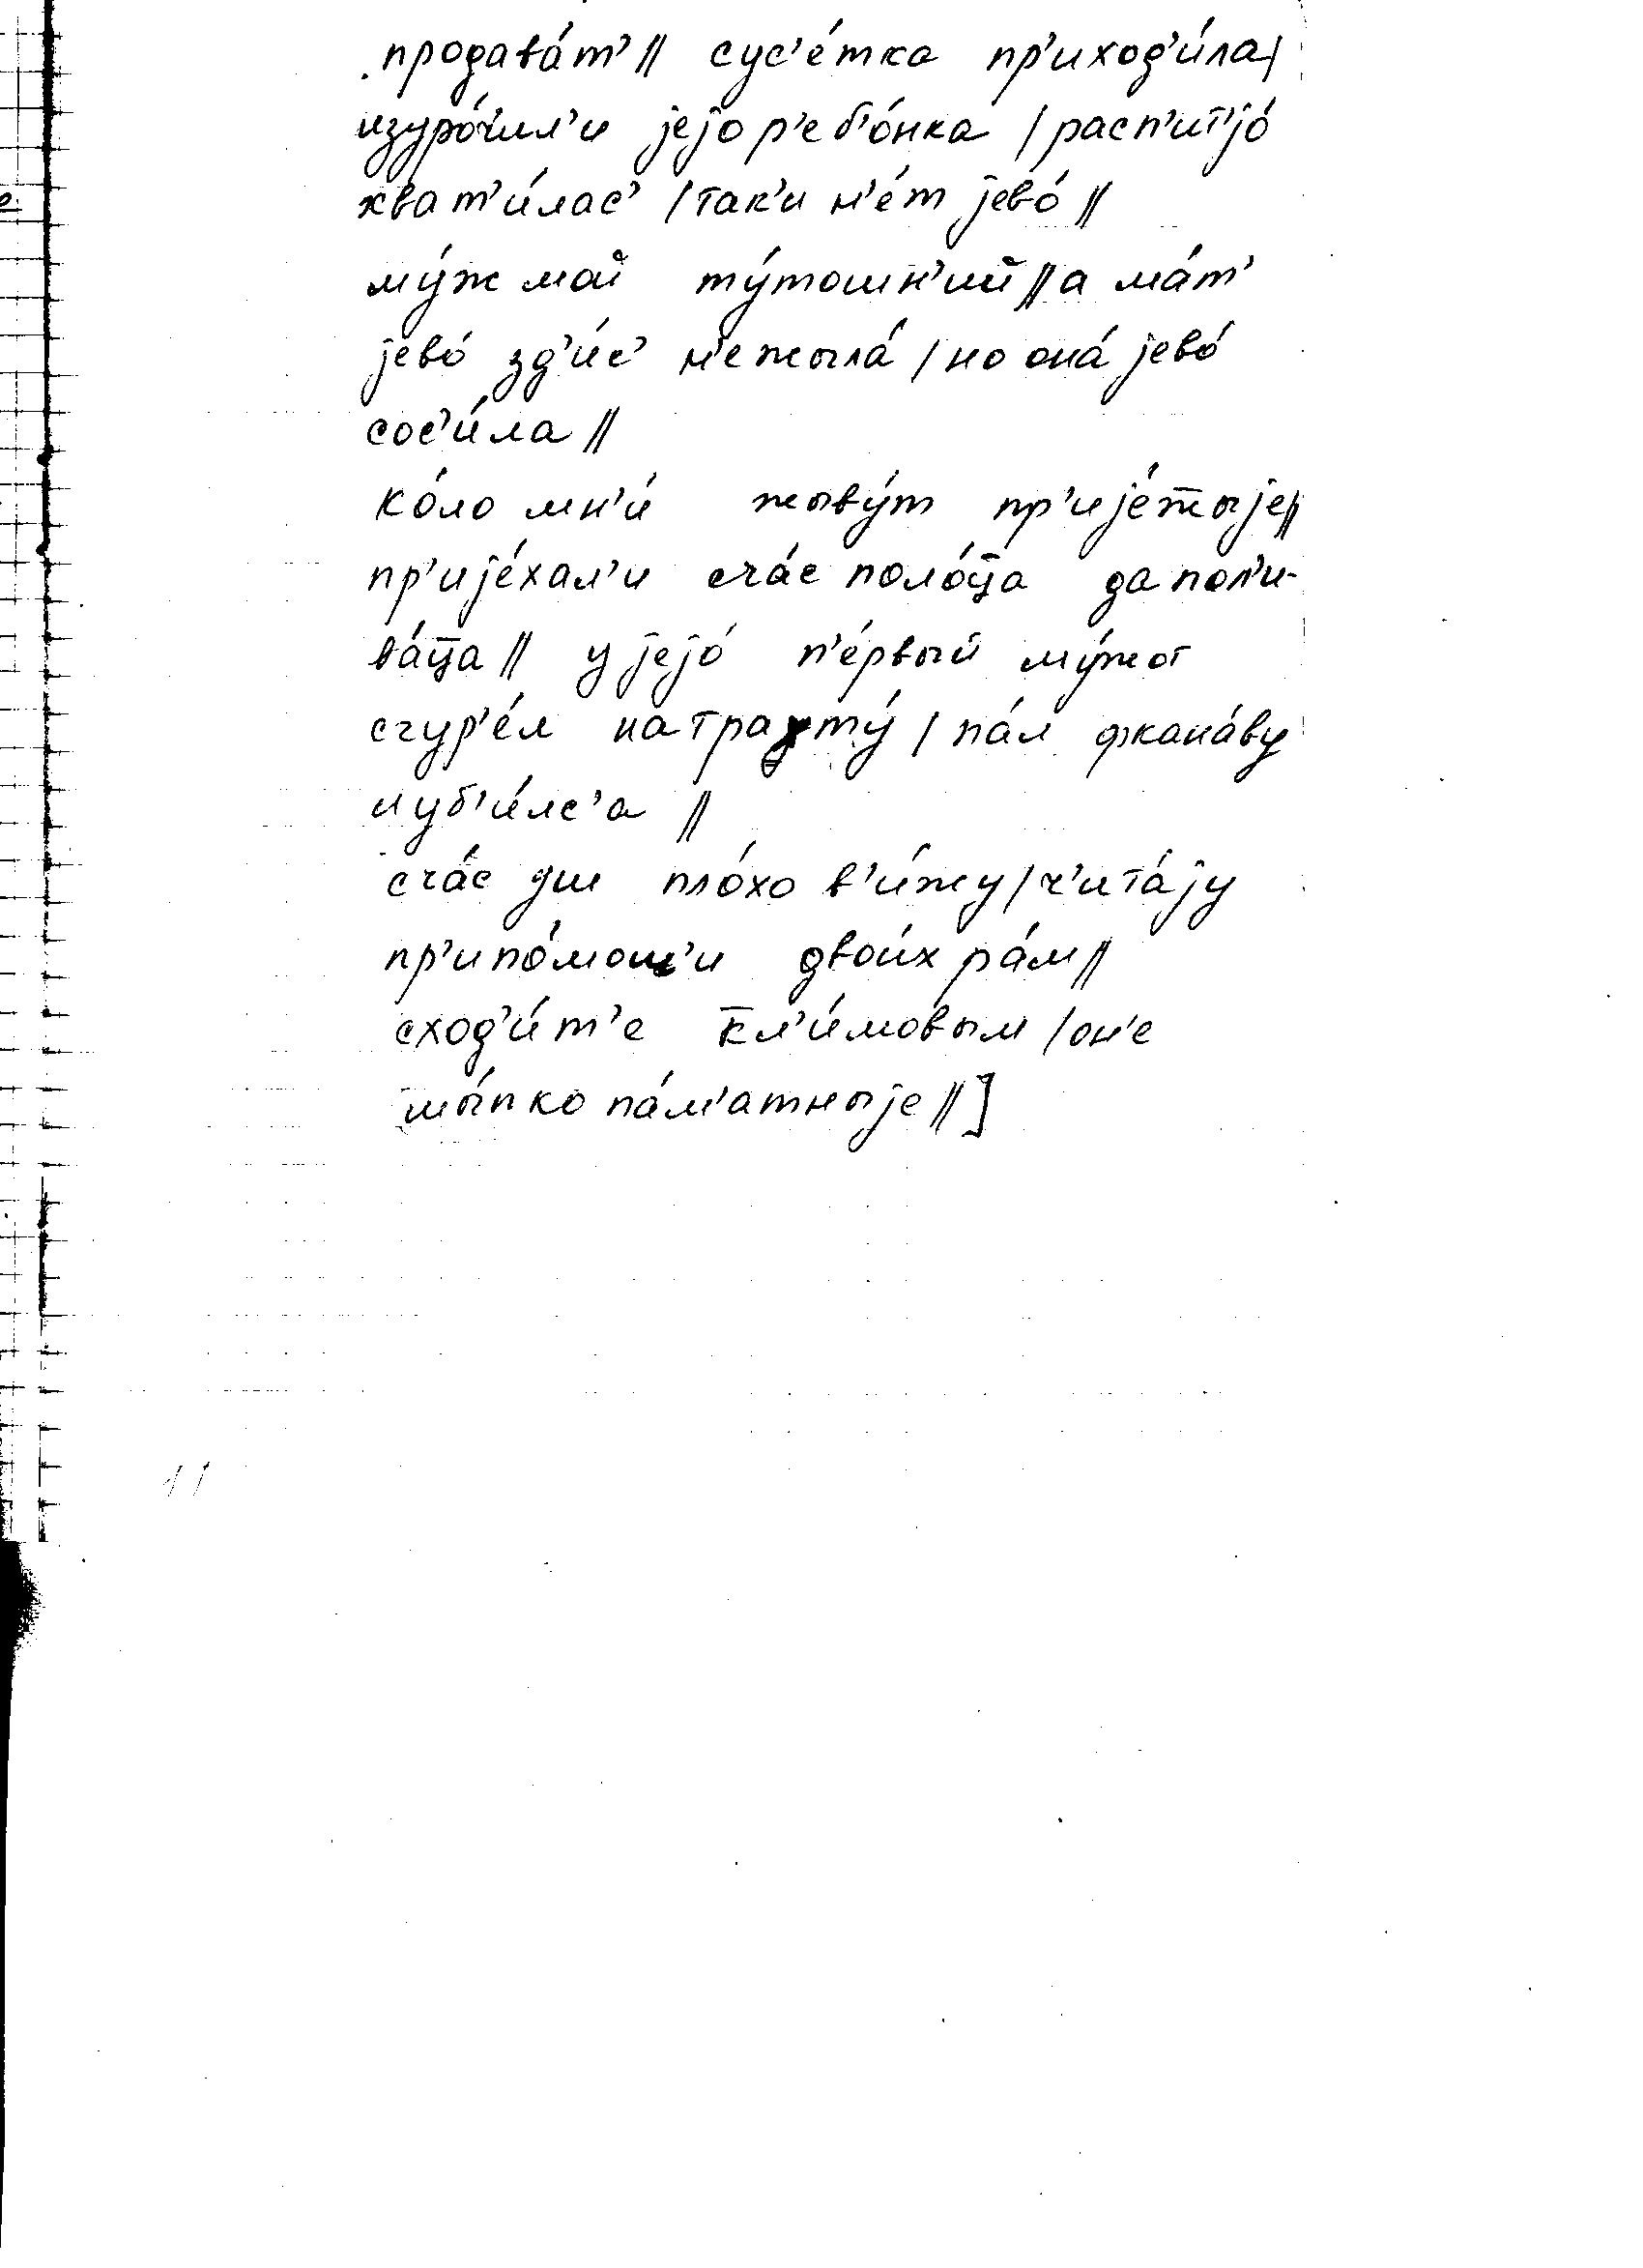 продава́т’ // сус’е́тка пр’иход’и́ла /
изуро́чил’и jejо р’еб’о́нка / расп’ит’jо́
хват’и́лас’ / так’и н’е́т jево́ //
му́ж мой ту́тошн’ий // а ма́т’
jево́ зд’и́с’ н’ежыла́ / но она́ jево́
сос’и́ла //
ко́ло мн’и́ жыву́т пр’иjе́жыjе //
пр’иjе́хал’и сча́с поло́ца да пол’и-
ва́ца // у jejо́ п’е́рвый му́жот
сгур’е́л на трахту́ / па́л фкана́ву
и уб’и́лс’а //
сча́с уш пло́хо в’и́жу / ч’ита́jу
пр’ипо́мош’и двои́х ра́м //
сход’и́т’е кл’и́мовым / он’е
шы́пко па́м’атныjе // ]
11